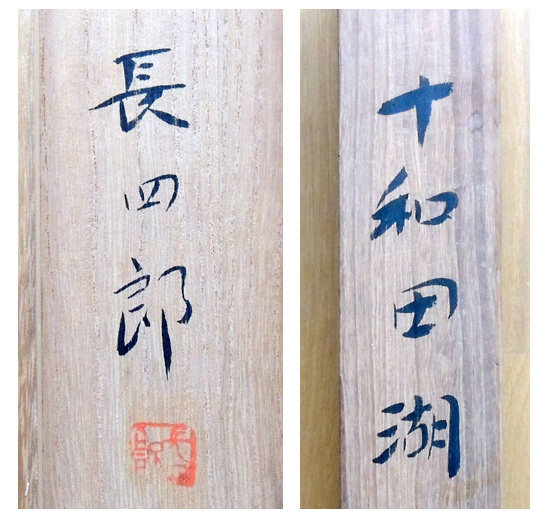 長四郎
十和田湖